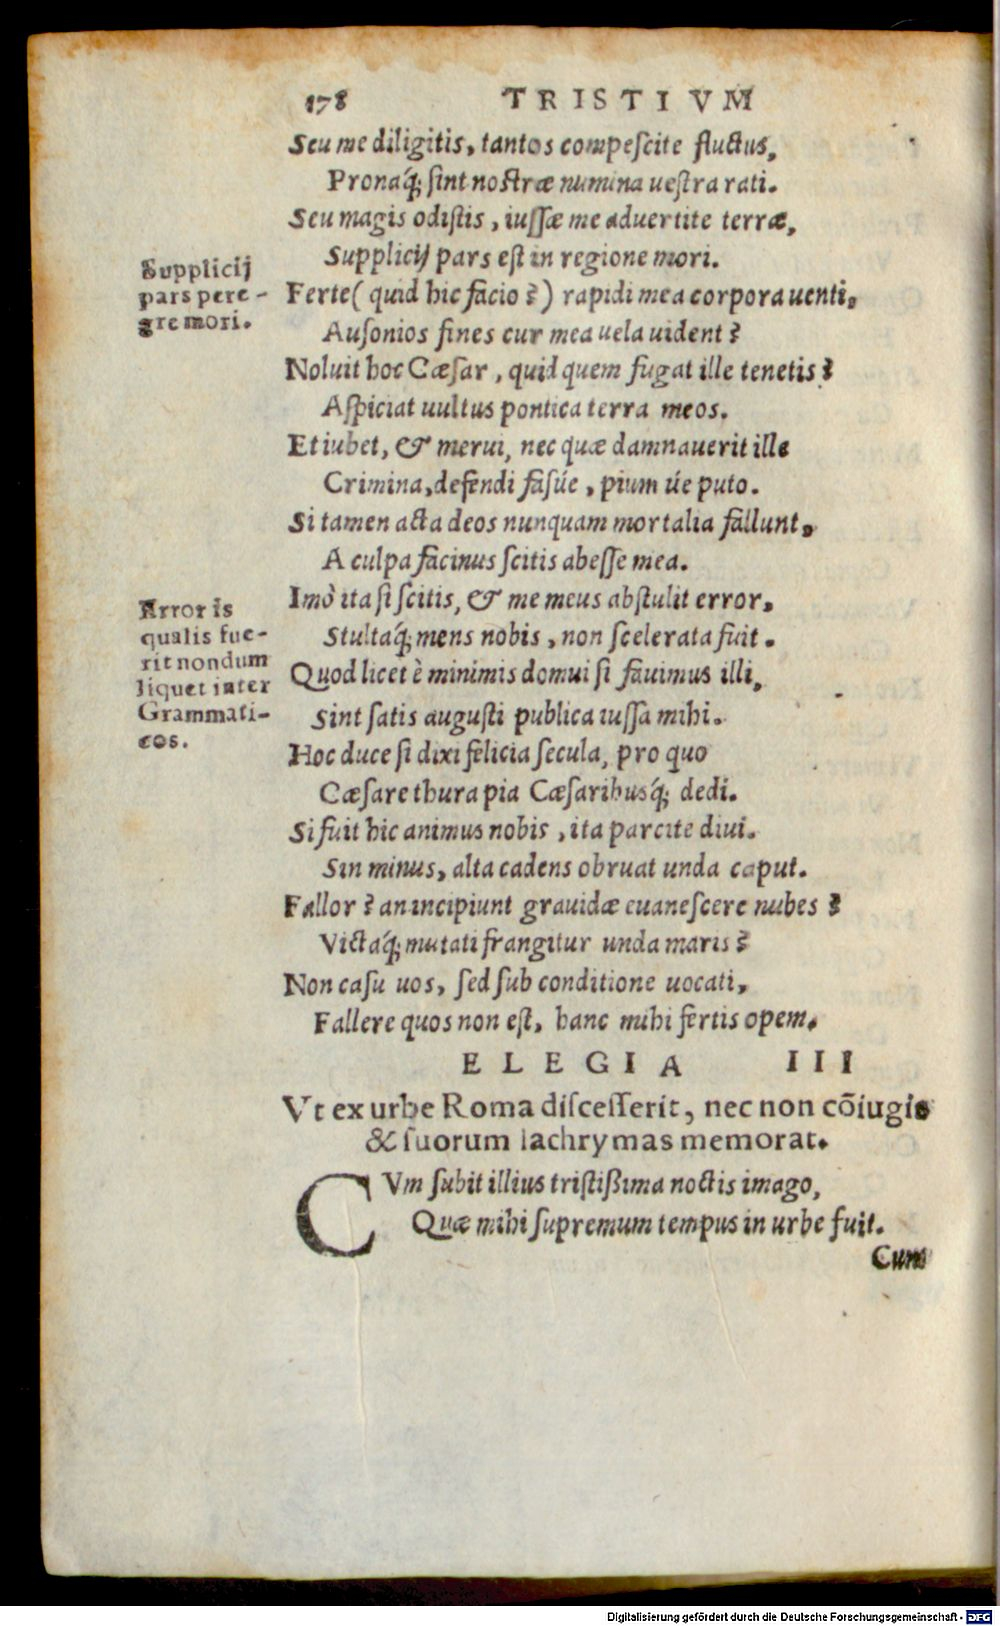 178 TRISTIVM
Seu me diligitis, tantos compeſcite fluctus,
Pronaq́; ſint noſtræ numina ueſtra rati.
Seu magis odiſtis, iuſſæ me aduertite terræ,
Supplicij pars eſt in regione mori.
Supplicij
pars pere-
gre mori.
Ferte (quid hic facio?) rapidi mea corpora uenti,
Auſonios fines cur mea uela uident?
Noluit hoc Cæſar, quid quem fugat ille tenetis?
Aſpiciat uultus pontica terra meos.
Et iubet, & merui, nec quæ damnauerit ille
Crimina, defendi fasúe, pium úe puto.
Si tamen acta deos nunquam mortalia fallunt,
A culpa facinus ſcitis abeſſe mea.
Imò ita ſi ſcitis, & me meus abſtulit error,
Stultaq́; mens nobis, non ſcelerata fuit.
Error is
qualis fue-
rit nondum
liquet inter
Grammati-
cos.
Quod licet è minimis domui ſi fauimus illi,
Sint ſatis auguſti publica iuſſa mihi.
Hoc duce ſi dixi felicia ſecula, pro quo
Cæſare thura pia Cæſaribusq́; dedi.
Si fuit hic animus nobis, ita parcite diui.
Sin minus, alta cadens obruat unda caput.
Fallor? an incipiunt grauidæ euaneſcere nubes?
Victaq́; mutati frangitur unda maris?
Non caſu uos, ſed ſub conditione uocati,
Fallere quos non eſt, hanc mihi fertis opem.
ELEGIA III
Vt ex urbe Roma diſceſſerit, nec non cõiugis
& ſuorum lachrymas memorat.
CVm ſubit illius triſtißima noctis imago,
Quæ mihi ſupremum tempus in urbe fuit.
Cum
Digitalisierung gefördert durch die Deutsche Forschungsgemeinschaft - DFG